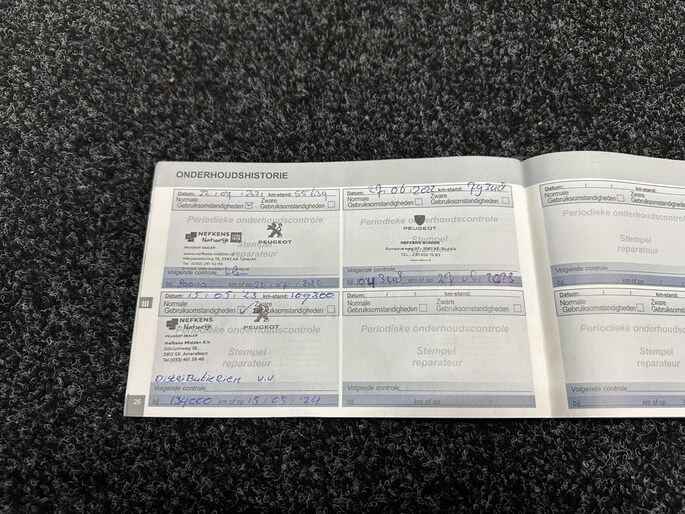 ONDERHOUDSHISTORIE
Datum: 22 , 07 , 2021 km-stand: 55639
Normale Zware
Gebruiksomstandigheden Gebruiksomstandigheden
Periodieke onderhoudscontrole
NEFKENS
Natuurlijk
PEUGEOT DEALER
PEUGEOT
Stempel
reparateur
Volgende controle
bij km of op 22
Datum: 27 , 06 , 2022 km-stand:
Normale Zware
Gebruiksomstandigheden Gebruiksomstandigheden
Periodieke onderhoudscontrole
PEUGEOT
Stempel
reparateur
Volgende controle
bij km of op 27 2023
Datum:
Normale
Gebruiksomstandigheden
Periodieke
Stempel
reparateur
Volgende controle
bij
III
Datum: 15 , 05 , 23 km-stand: 109300
Normale Zware
Gebruiksomstandigheden Gebruiksomstandigheden
Periodieke onderhoudscontrole
NEFKENS
Natuurlijk
PEUGEOT DEALER
PEUGEOT
Nefkens Midden B.V.
3812 SE Amersfoort
Stempel
reparateur
Distributieriem v.v.
Volgende controle
bij 134000 km of op 15 , 05 , '24
Datum: km-stand:
Normale Zware
Gebruiksomstandigheden Gebruiksomstandigheden
Periodieke onderhoudscontrole
Stempel
reparateur
Volgende controle
bij km of op
Datum: km-stand:
Normale Zware
Gebruiksomstandigheden
Periodieke onderhoudscontrole
Stempel
reparateur
Volgende controle
bij km of op
26